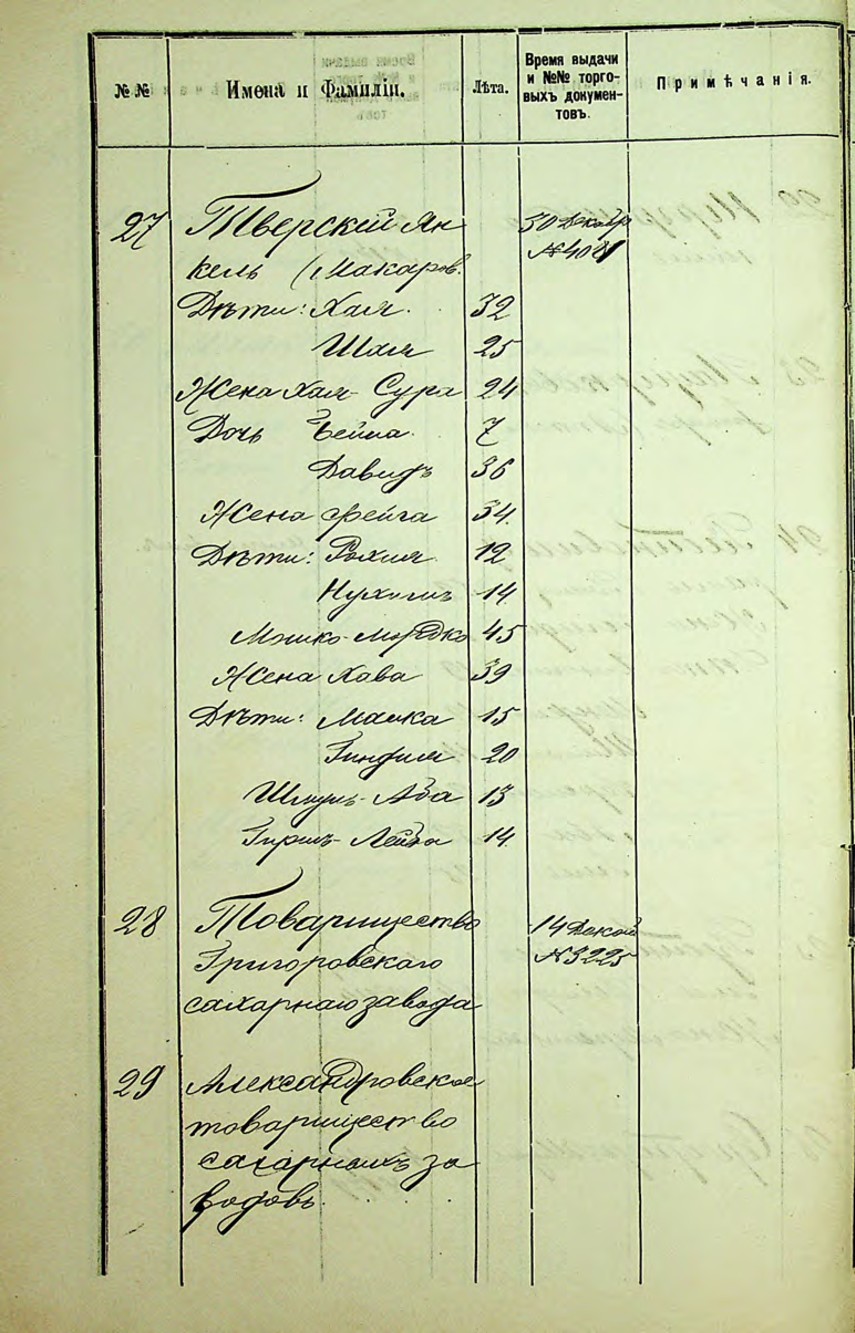 №№ Имена и Фамиліи. Лѣта. Время выдачи и №№ торго-выхъ докумен-товъ. Примѣчанія.
27 Тверскій Ян 30 Декабр
кель (Макаров. №
Дѣти: Хая. 32
Шая 25
Жена Хая-Сура 24
Дочь Бейла. 7
Давидъ 36
Жена Фейга 34.
Дѣти: Рохля 12
Нухимъ 14
Мошко-Мордко 45
Жена Хава 39
Дѣти: Малка 15
20
Шмуль-Аба 13
Гершъ-Лейба 14.
28 Товарищество 14 Декаб
Григоровскаго №3225
сахарнаго завода
29 Александровское
товарищество
сахарныхъ за
водовъ.